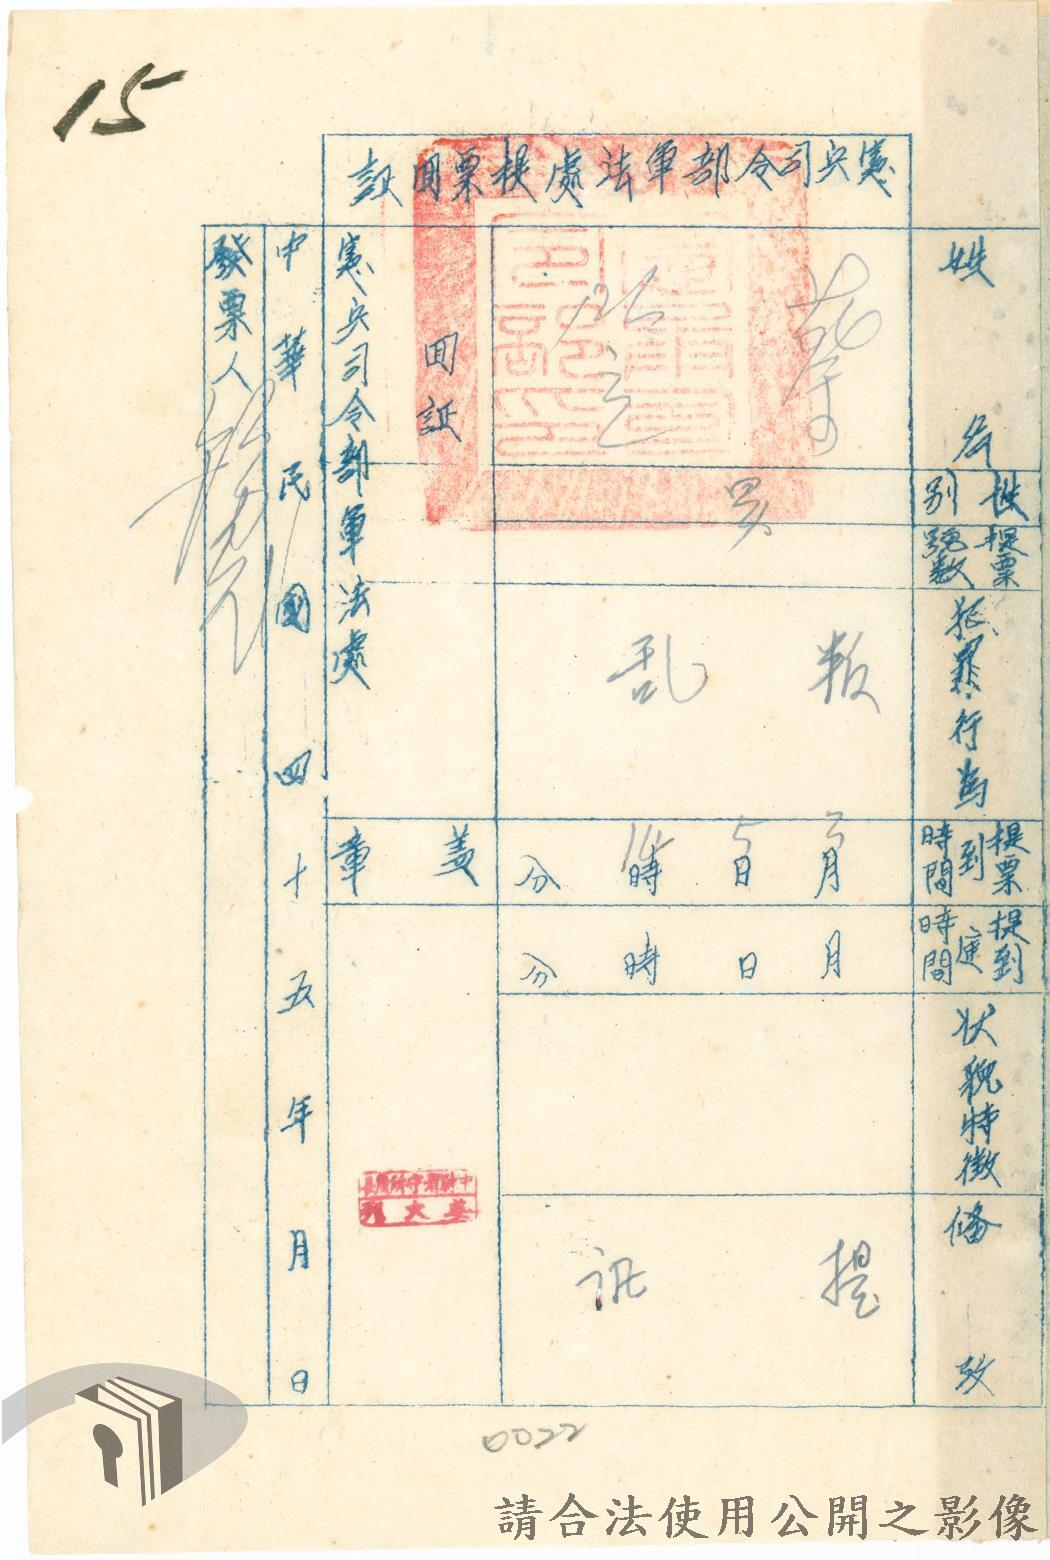 15
憲兵司令部軍法處提票回証
姓名
性別
男
提票號數
犯罪行為
叛乱
提票到時間
月5日14時分
提到庭時間
月日時分
狀貌特徵
備攷
提訊
回証
憲兵司令部軍法處
蓋章
中華民國四十五年月日
發票人
0022
請合法使用公開之影像